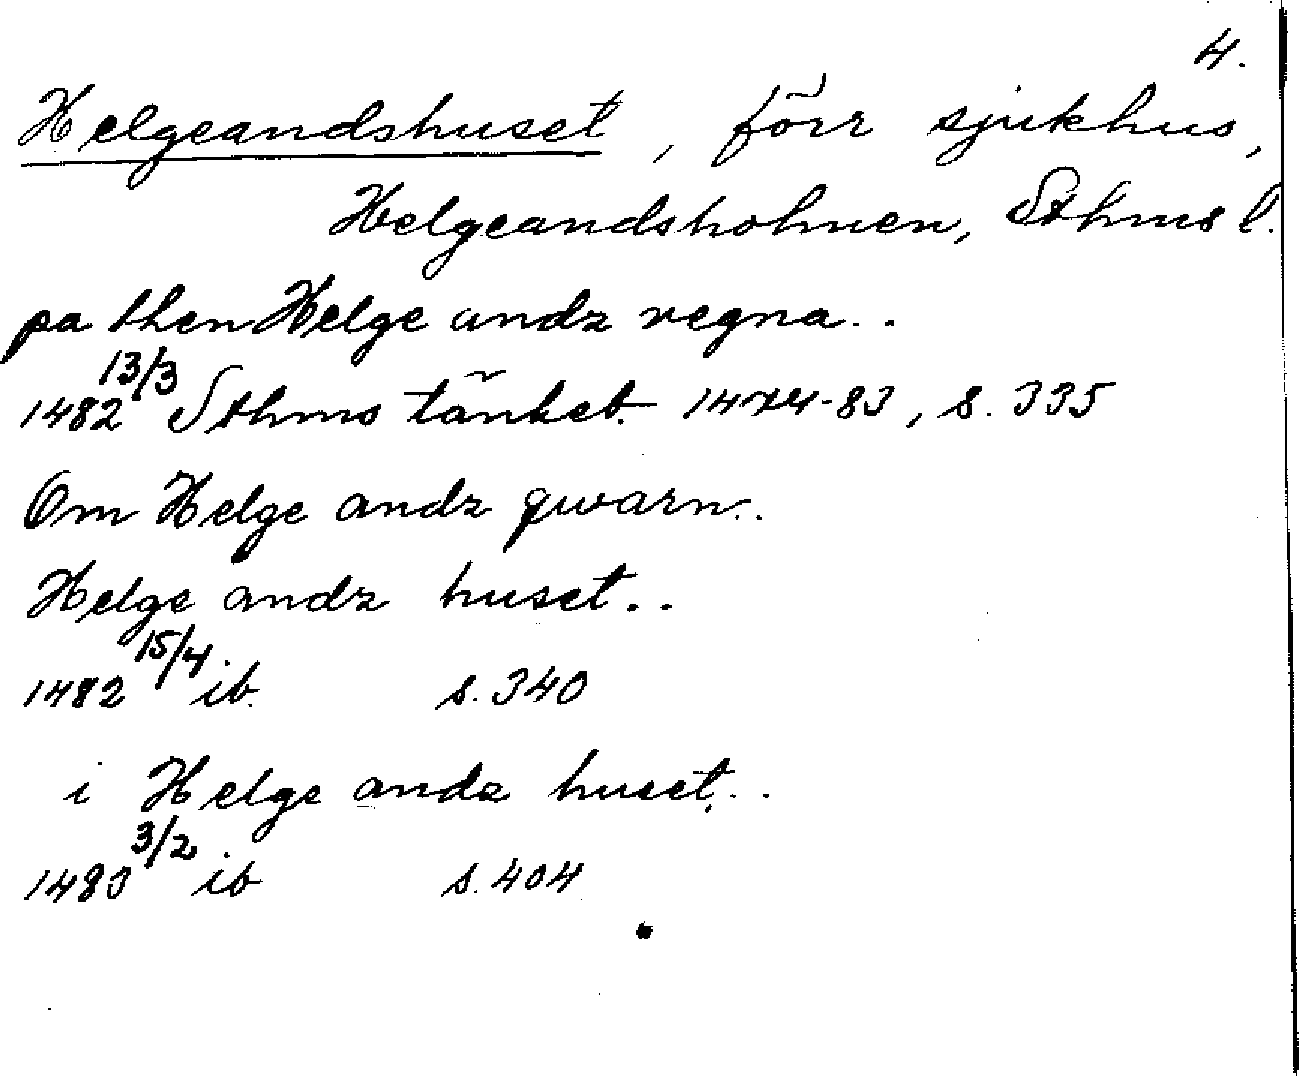 4.
Helgeandshuset, förr sjukhus,
Helgeandsholmen, Sthms l.
pa then Helge andz vegna..
1482 13/3 Sthms tänkeb. 1474-83, s. 335
Om Helge andz qwarn..
Helge andz huset..
1482 15/4 ib. s. 340
i Helge andz huset..
1483 3/2 ib s. 404